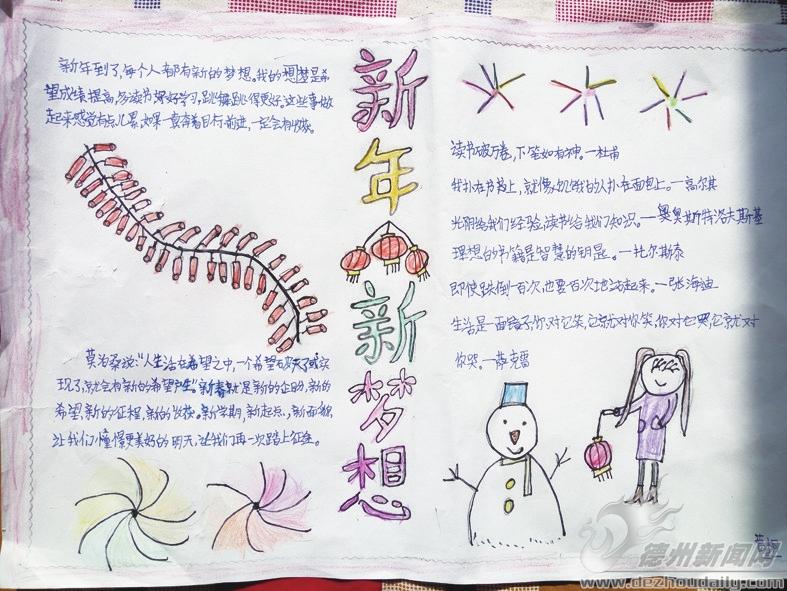 新年到了,每个人都有新的梦想。我的想梦是希
望成绩提高,多读书,好好学习,跳舞跳得更好。这些事做
起来感觉有点儿累,如果一直奔着目标前进,一定会有收获。
新年新梦想
莫泊桑说:"人生活在希望之中,一个希望破灭了或实
现了,就会有新的希望产生。"新春就是新的企盼,新的
希望,新的征程,新的收获。新学期,新起点,新面貌,
让我们憧憬更美好的明天,让我们再一次踏上征途。
读书破万卷,下笔如有神。—杜甫
我扑在书上,就像饥饿的人扑在面包上。—高尔基
光阴给我们经验,读书给我们知识。—奥斯特洛夫斯基
理想的书籍是智慧的钥匙。—托尔斯泰
即使跌倒一百次,也要百次地站起来。—张海迪
生活是一面镜子,你对它笑,它就对你笑,你对它哭,它就对
你哭。—萨克雷
德州新闻网
www.dezhoudaily.com